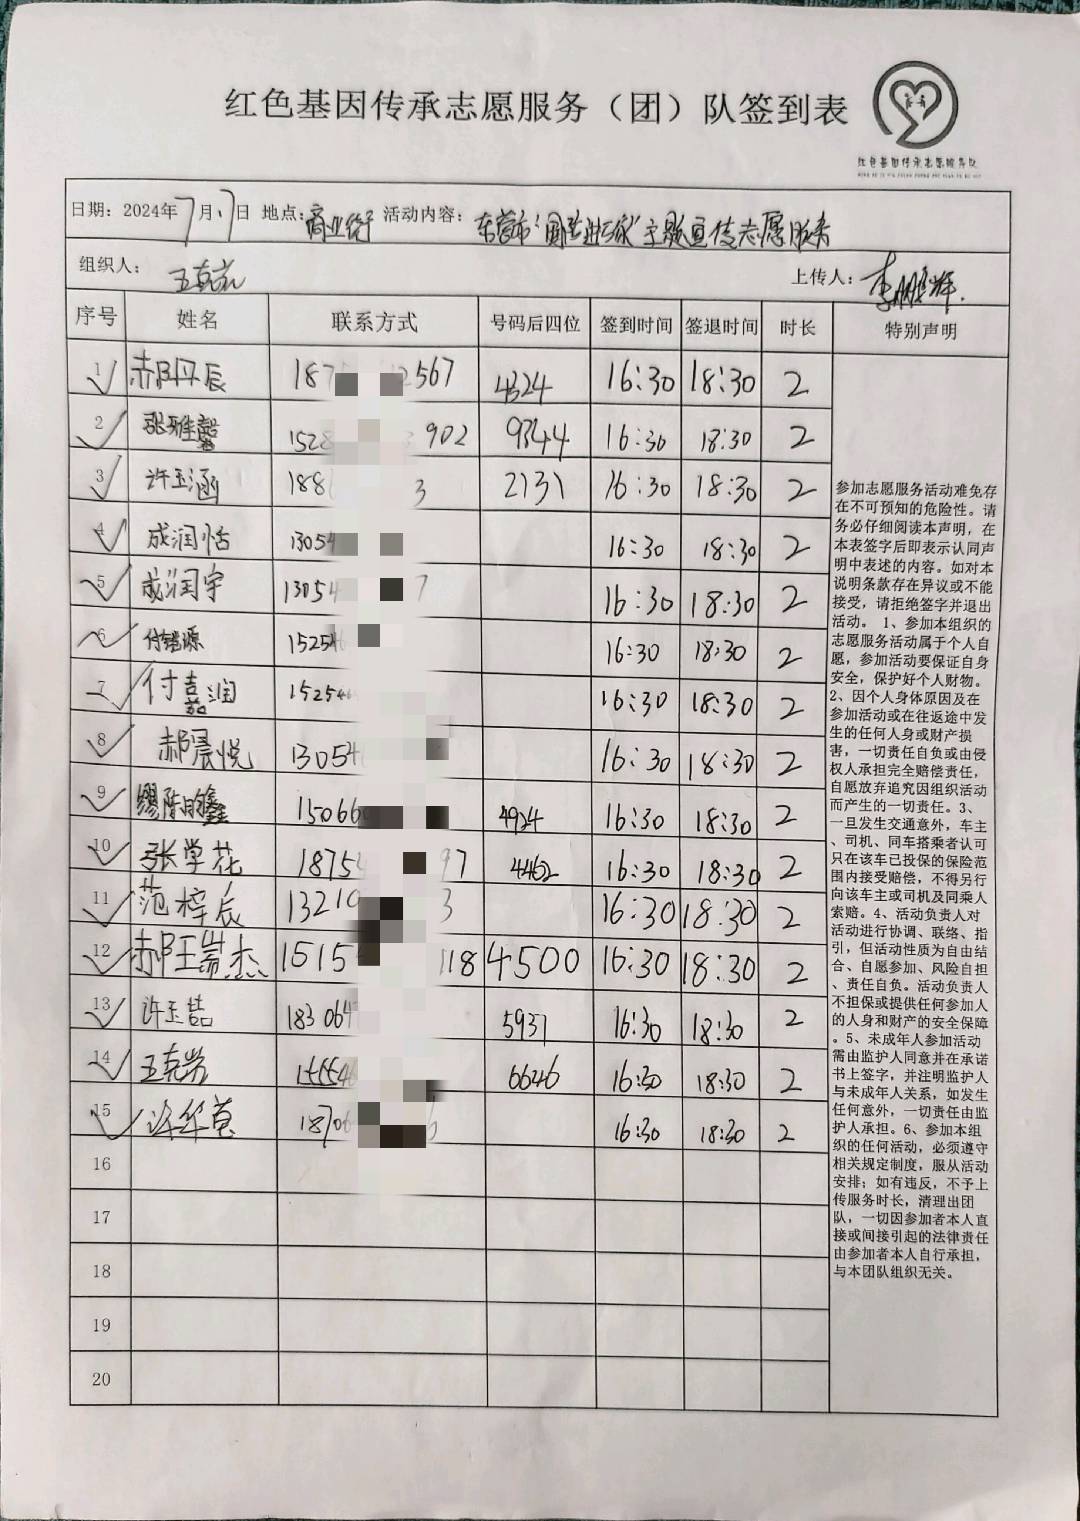 红色基因传承志愿服务（团）队签到表
红色基因传承志愿服务队
日期：2024年7月7日 地点：商业街 活动内容：东营市"国法进万家"主题宣传志愿服务
组织人：王克芸 上传人：李鹏辉
序号 姓名 联系方式 号码后四位 签到时间 签退时间 时长 特别声明
1 郝丹辰 187 2567 4324 16:30 18:30 2
2 张雅馨 1528 902 9344 16:30 18:30 2
3 许玉涵 188 3 2131 16:30 18:30 2
4 成润恬 13054 16:30 18:30 2
5 成润宇 13054 7 16:30 18:30 2
6 付 源 15254 16:30 18:30 2
7 付嘉润 15254 16:30 18:30 2
8 郝晨悦 13054 16:30 18:30 2
9 150660 4924 16:30 18:30 2
10 张学花 18754 97 4462 16:30 18:30 2
11 范梓辰 13210 3 16:30 18:30 2
12 郝王崇杰 1515 118 4500 16:30 18:30 2
13 许玉喆 183064 5937 16:30 18:30 2
14 王克芸 15554 6646 16:30 18:30 2
15 许华英 18706 6 16:30 18:30 2
16
17
18
19
20
参加志愿服务活动难免存
在不可预知的危险性。请
务必仔细阅读本声明，在
本表签字后即表示认同声
明中表述的内容。如对本
说明条款存在异议或不能
接受，请拒绝签字并退出
活动。 1、参加本组织的
志愿服务活动属于个人自
愿，参加活动要保证自身
安全，保护好个人财物。
2、因个人身体原因及在
参加活动或在往返途中发
生的任何人身或财产损
害，一切责任自负或由侵
权人承担完全赔偿责任，
自愿放弃追究因组织活动
而产生的一切责任。3、
一旦发生交通意外，车主
、司机、同车搭乘者认可
只在该车已投保的保险范
围内接受赔偿，不得另行
向该车主或司机及同乘人
索赔。4、活动负责人对
活动进行协调、联络、指
引，但活动性质为自由结
合、自愿参加、风险自担
、责任自负。活动负责人
不担保或提供任何参加人
的人身和财产的安全保障
。5、未成年人参加活动
需由监护人同意并在承诺
书上签字，并注明监护人
与未成年人关系，如发生
任何意外，一切责任由监
护人承担。6、参加本组
织的任何活动，必须遵守
相关规定制度，服从活动
安排；如有违反，不予上
传服务时长，清理出团
队，一切因参加者本人直
接或间接引起的法律责任
由参加者本人自行承担，
与本团队组织无关。